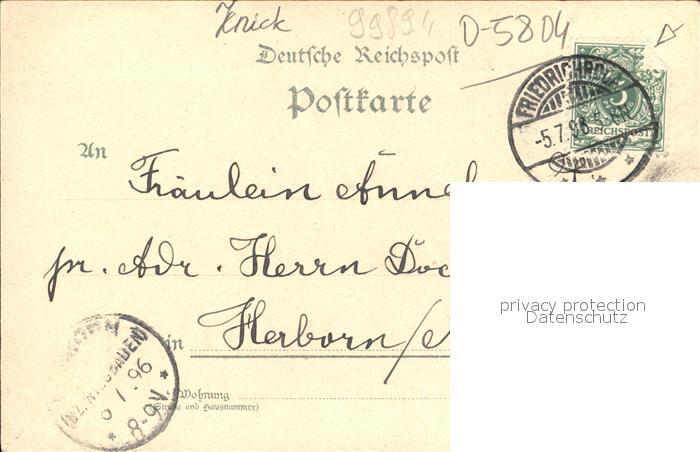 Knick 99894 D-5804
Deutsche Reichspost
Postkarte
FRIEDRICHRODA
-5.7.96
5
REICHSPOST
An
Fräulein Anne
pr. Adr. Herrn Doc
in Herborn/
(BZ. WIESBADEN)
6 7.96
8-9V.
Wohnung
(Straße und Hausnummer)
privacy protection
Datenschutz